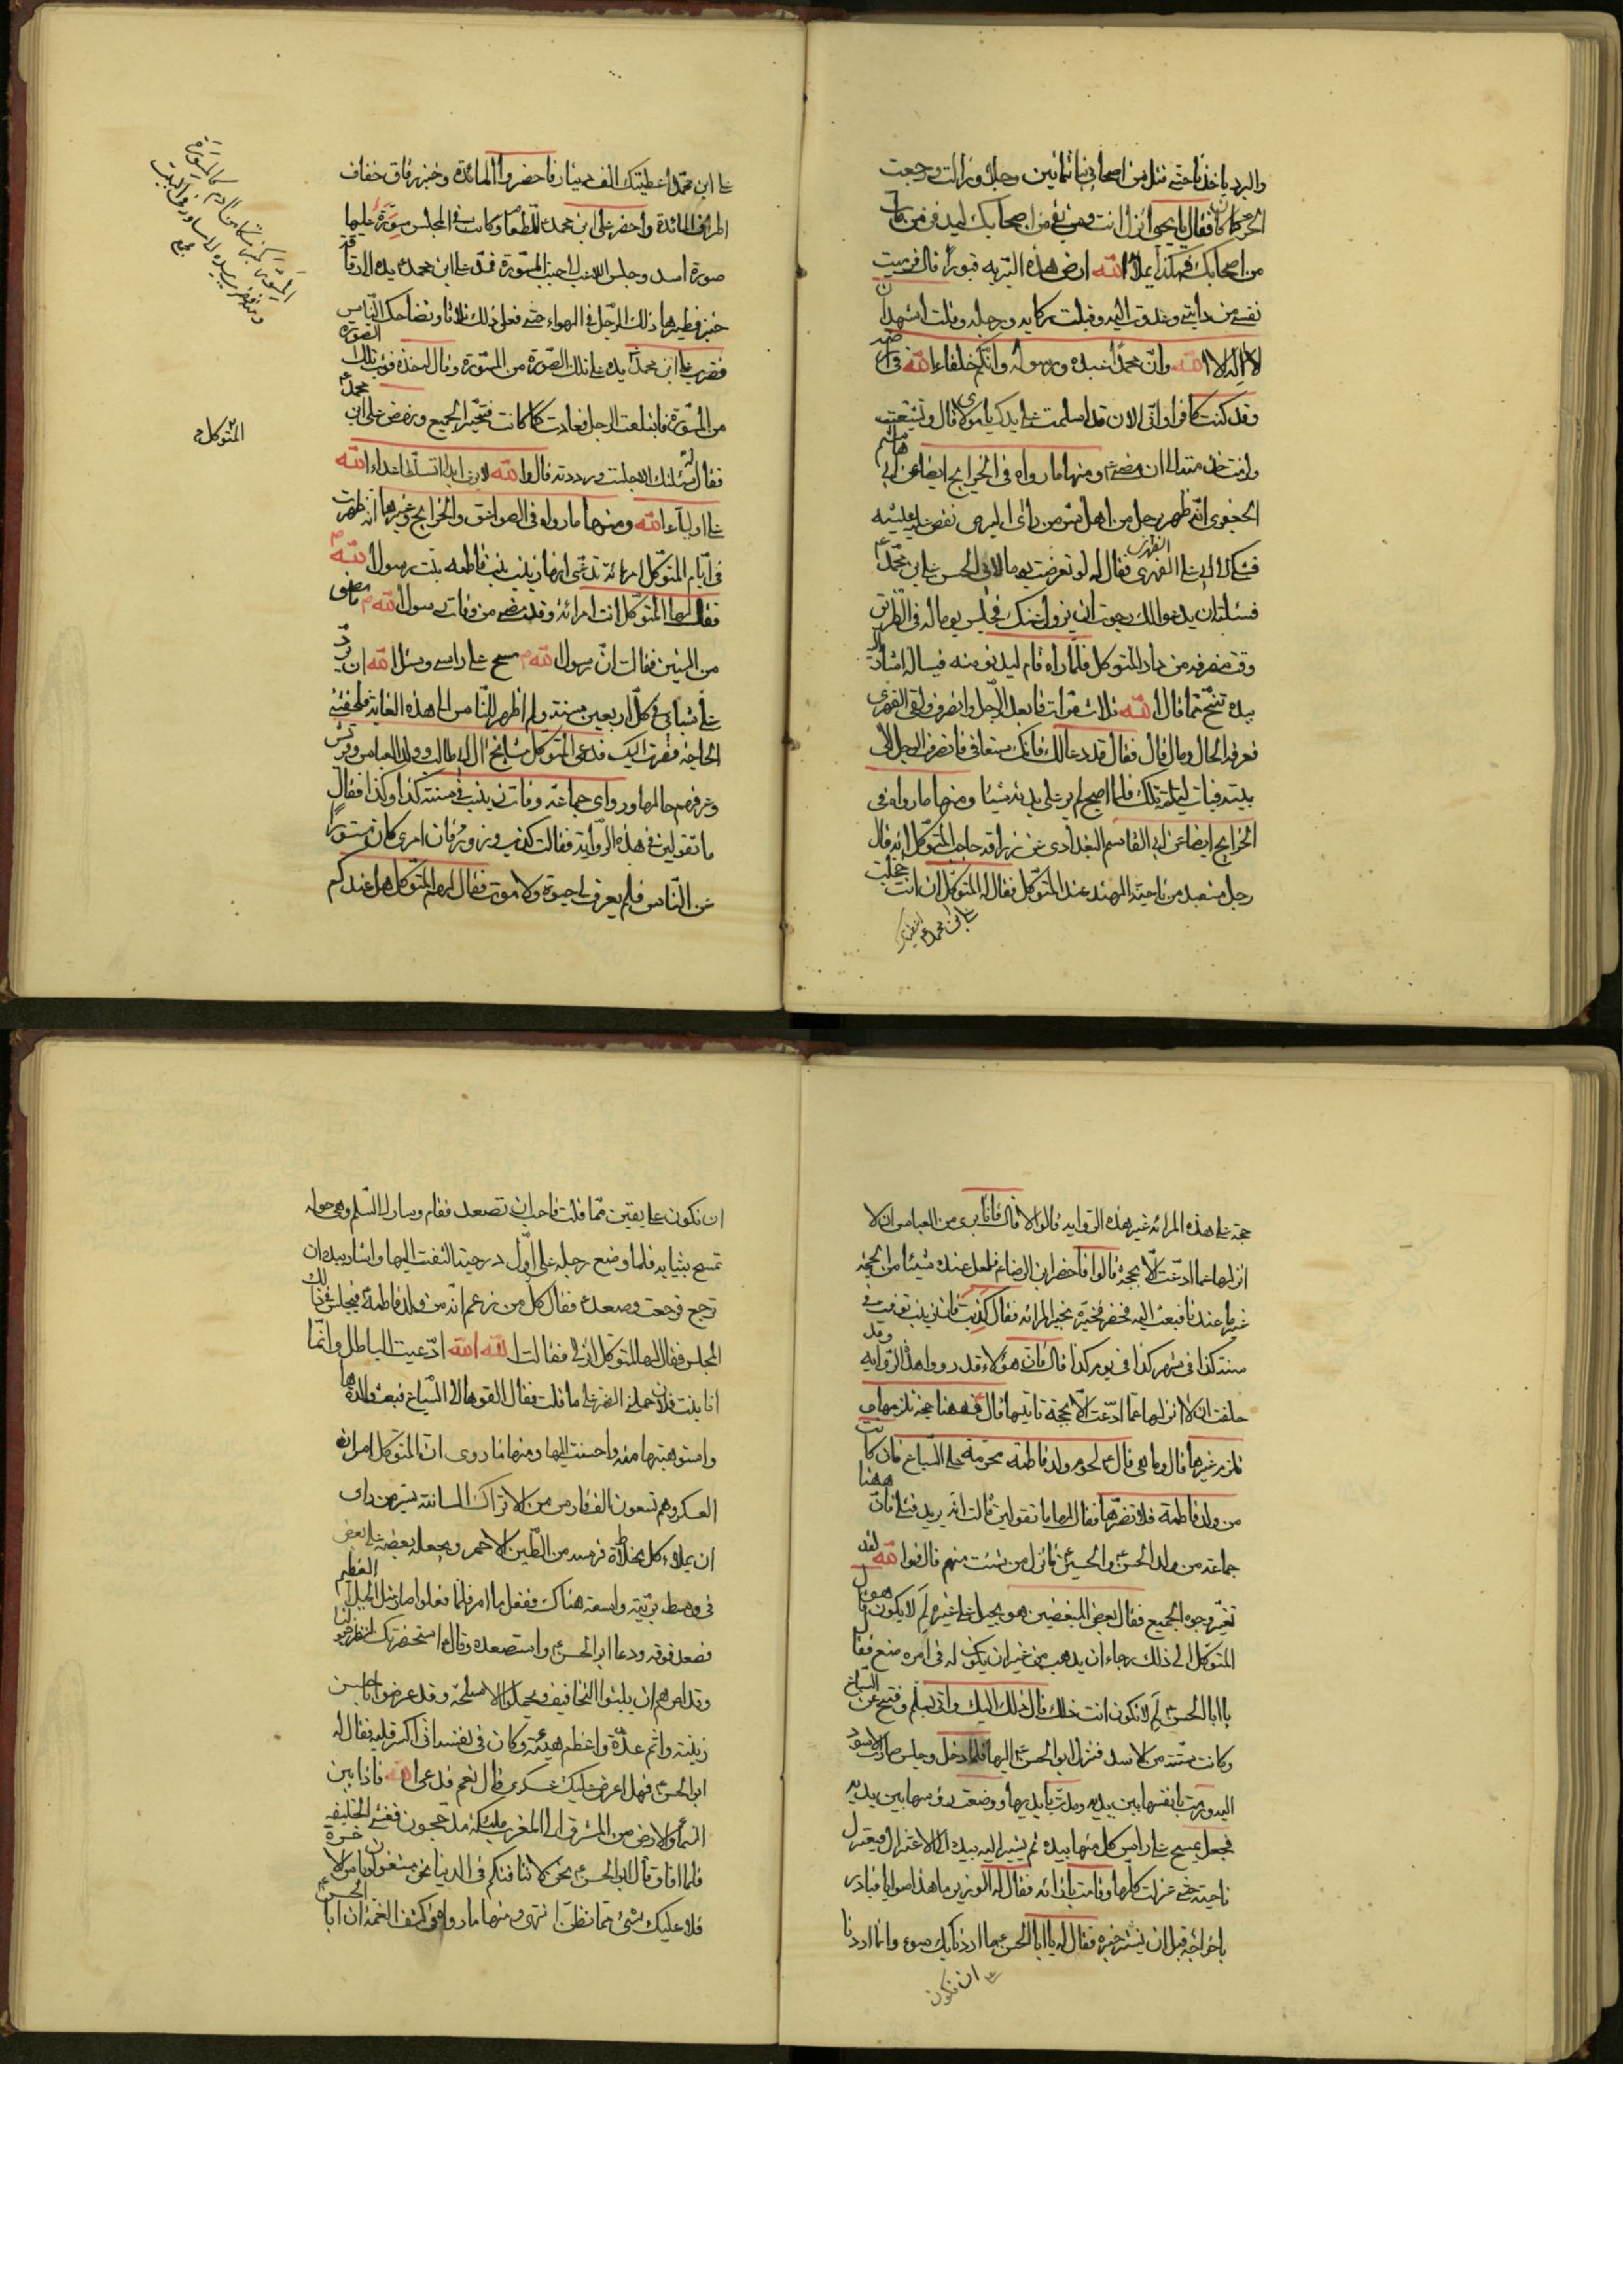 والبرد ياخذنا حتى قتل من اصحابى ثمانين رجلا وزالت ورجعت
الحر كما كان فقال يا يحيى انزل انت ومن بقى من اصحابك ليدفن من مات
من اصحابك فهكذا يملأ الله ارض هذه البرّيه قبورا قال فرميت
نفسى من دابتى وعدوت اليه وقبلت ركابه ورجله وقلت اشهد ان
لا اله الا الله وانّ محمدا عبده ورسوله وانّكم خلفاء الله فى ارضه
وقد كنت كافرا وانّى الان قد اسلمت على يدك يا مولاى قال وتشيّعت
ولزمت خدمته الى ان مضى ومنها ما رواه فى الخرايج ايضا عن ابى هاشم
الجعفرى انّه ظهر برجل من اهل سر من راى البرص نغص عليه عيشه
فشكى الى ابى على الفهرى فقال له لو تعرضت يوما لابى الحسن على ابن محمّد
فسئلته ان يدعو لك رجوت ان يزول عنك فجلس يوما له فى الطريق
وقت منصرفه من دار المتوكل فلمّا راه قام ليدنو منه فيساله اشار اليه
بيده تنحّ عافاك الله ثلاث مرّات فابعد الرّجل وانصرف ولقى الفهرى
فعرفه الحال وما قال فقال قد دعا لك فانك ستعافى فانصرف الرجل الى
بيته فبات ليلته تلك فلما اصبح لم ير على بدنه شيئا ومنها ما رواه فى
الخرايج ايضا عن ابى القاسم البغدادى عن زرافة حاجب المتوكّل انّه قال
رجل مشعبد من ناحية الهند عند المتوكّل فقال له المتوكّل ان انت خجلت
على ابن محمد اعطيتك
على ابن محمّد اعطيتك الف دينار فاحضروا المائدة وخبز رقاق خفاف
اطراف المائدة واحضر على ابن محمد للطعام وكانت فى المجلس مسوّرة عليها
صورة اسد وجلس اللاعب الى جنب المسوّرة فمدّ على ابن محمد يده الى رقاقة
خبز فطيّرها ذلك الرّجل فى الهواء حتى فعل ذلك ثلاثا وتضاحك النّاس
فضرب على ابن محمد يده على تلك الصّورة من المسوّرة وقال خذه فوثب تلك الصورة
من المسوّرة فابتلعت الرجل فعادت كما كانت فتحيّر الجميع ونهض على ابن محمد
فقال المتوكل سئلتك الا جلست ورددته قال والله لا يرى ابدا تسلّط اعداء الله
على اولياء الله ومنها ما رواه فى الصواعق والخرايج وغيرها انه ظهرت
فى ايّام المتوكّل امرئة تدعى انها زينب بنت فاطمه بنت رسول الله
فقال لها المتوكّل انت امرائة وقد مضى من وفات رسول الله ما مضى
من السنين فقالت انّ رسول الله مسح على راسى وسئل الله ان يردّ
على شبابى فى كلّ اربعين سنة ولم اظهر للنّاس الى هذه الغاية فلحقتنى
الحاجة فصرت اليك فدعى المتوكّل مشايخ ال ابى طالب وولد العباس وقريش
وعرفهم حالها وروى جماعة وفات زينب فى سنته كذا وكذا فقال
ما تقولين فى هذه الرّواية فقالت كذب وزور فان امرى كان مستورا
عن النّاس فلم يعرف لى حيوة ولا موت فقال لهم المتوكّل هل عندكم
المتوكل
حجّة على هذه المرائه غير هذه الرّوايه قالوا لا قال فانا برىء من العباس ان لا
انزلها عما ادّعت الّا بحجّة قالوا فاحضر ابن الرضا فلعلّ عنده شيئا من الحجّة
غير ما عندنا فبعث اليه فحضر فخبّره بخبر المرائه فقال كذبت فان زينب توفيت فى
سنة كذا فى شهر كذا فى يوم كذا قال فانّ هؤلاء قد رووا هذا الرّوايه وقد
حلفت ان لا انزلها عمّا ادّعت الّا بحجة قال فههنا حجة تلزمها و
تلزم غيرها قال وما هى قال لحوم ولد فاطمه محرّمة على السّباع فان كانت
من ولد فاطمة فلا تضرّها فقال لها ما تقولين قالت انّه يريد قتلى قال فههنا
جماعة من ولد الحسن والحسين فانزل من شئت منهم قال فوالله لقد
تغيّر وجوه الجميع فقال بعض المبغضين هو يحيل على غيره لم لا يكون هو فمال
المتوكّل الى ذلك رجاء ان يذهب من غير ان يكون له فى امره صنع فقال
يا ابا الحسن لم لا تكون انت ذلك قال ذلك اليك واتى بسلّم وفتح عن السّباع
وكانت ستّة من الاسد فنزل ابو الحسن اليها فلمّا دخل وجلس صارت الاسود
اليه ورمت بانفسها بين يديه ومدّت بايديها ووضعت رؤسها بين يديه
فجعل يمسح على راس كل منها بيده ثم يشير اليه بيده الى الاعتزال فيعتزل
ناحيته حتى عزلت كلّها وقامت بازائه فقال له الوزير ما هذا صوابا فبادر
باخراجه قبل ان ينتشر خبره فقال له يا ابا الحسن ما اردنا بك سوء وانما اردنا
ان نكون
ان نكون على يقين ممّا قلت فاحب ان تصعد فقام وسار الى السّلم وهى حوله
تمسح بثيابه فلما وضع رجله على اوّل درجة التفت اليها واشار بيده ان
ترجع فرجعت وصعد فقال كل من زعم انّه من ولد فاطمة فليجلس فى ذلك
المجلس فقال لها المتوكّل انزلى فقالت الله الله ادّعيت الباطل وانّما
انا بنت فلان حملنى الضر على ما قلت فقال القوها الى السّباع فبعث والدته
واستوهبتها منه واحسنت اليها ومنها ما روى انّ المتوكّل امر ان
العسكر وهم تسعون الف فارس من الاتراك الساكنة بسر من راى
ان يملأ كل مخلاة فرسه من الطّين الاحمر ويجعل بعضه على بعض
فى وسط بريّة واسعة هناك ففعل ما امر فلمّا فعلوا صار مثل الجبل العظيم
فصعد فوقه ودعا ابو الحسن واستصعده وقال استحضرتك لتنظر خيولنا
وقد امرهم ان يلبثوا التجافيف ويحملوا الاسلحة وقد عرضوا باحسن
زينة واتم عدّة واعظم هيئة وكان فى نفسه انى اكسر قلبه فقال له
ابو الحسن فهل اعرض عليك عسكرى قال نعم فدعى الله فاذا بين
السّماء والارض من المشرق الى المغرب ملئكة مدجّجون فغشى الخليفه
فلما افاق قال ابو الحسن نحن لا ننافسكم فى الدنيا نحن مشغولون بامر الاخرة
فلا عليك شىء ممّا تظنّ انتهى ومنها ما رواه فى كشف الغمّة ان ابا الحسن